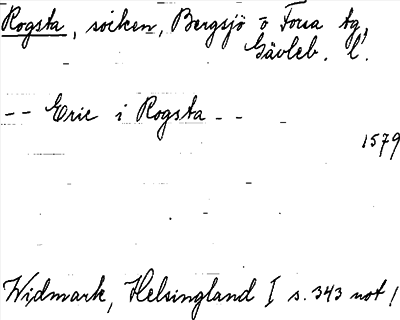 Rogsta, socken, Bergsjö o Forsa tg,
Gävleb. l.
-- Eric i Rogsta --
1579
Widmark, Helsingland I s. 343 not 1